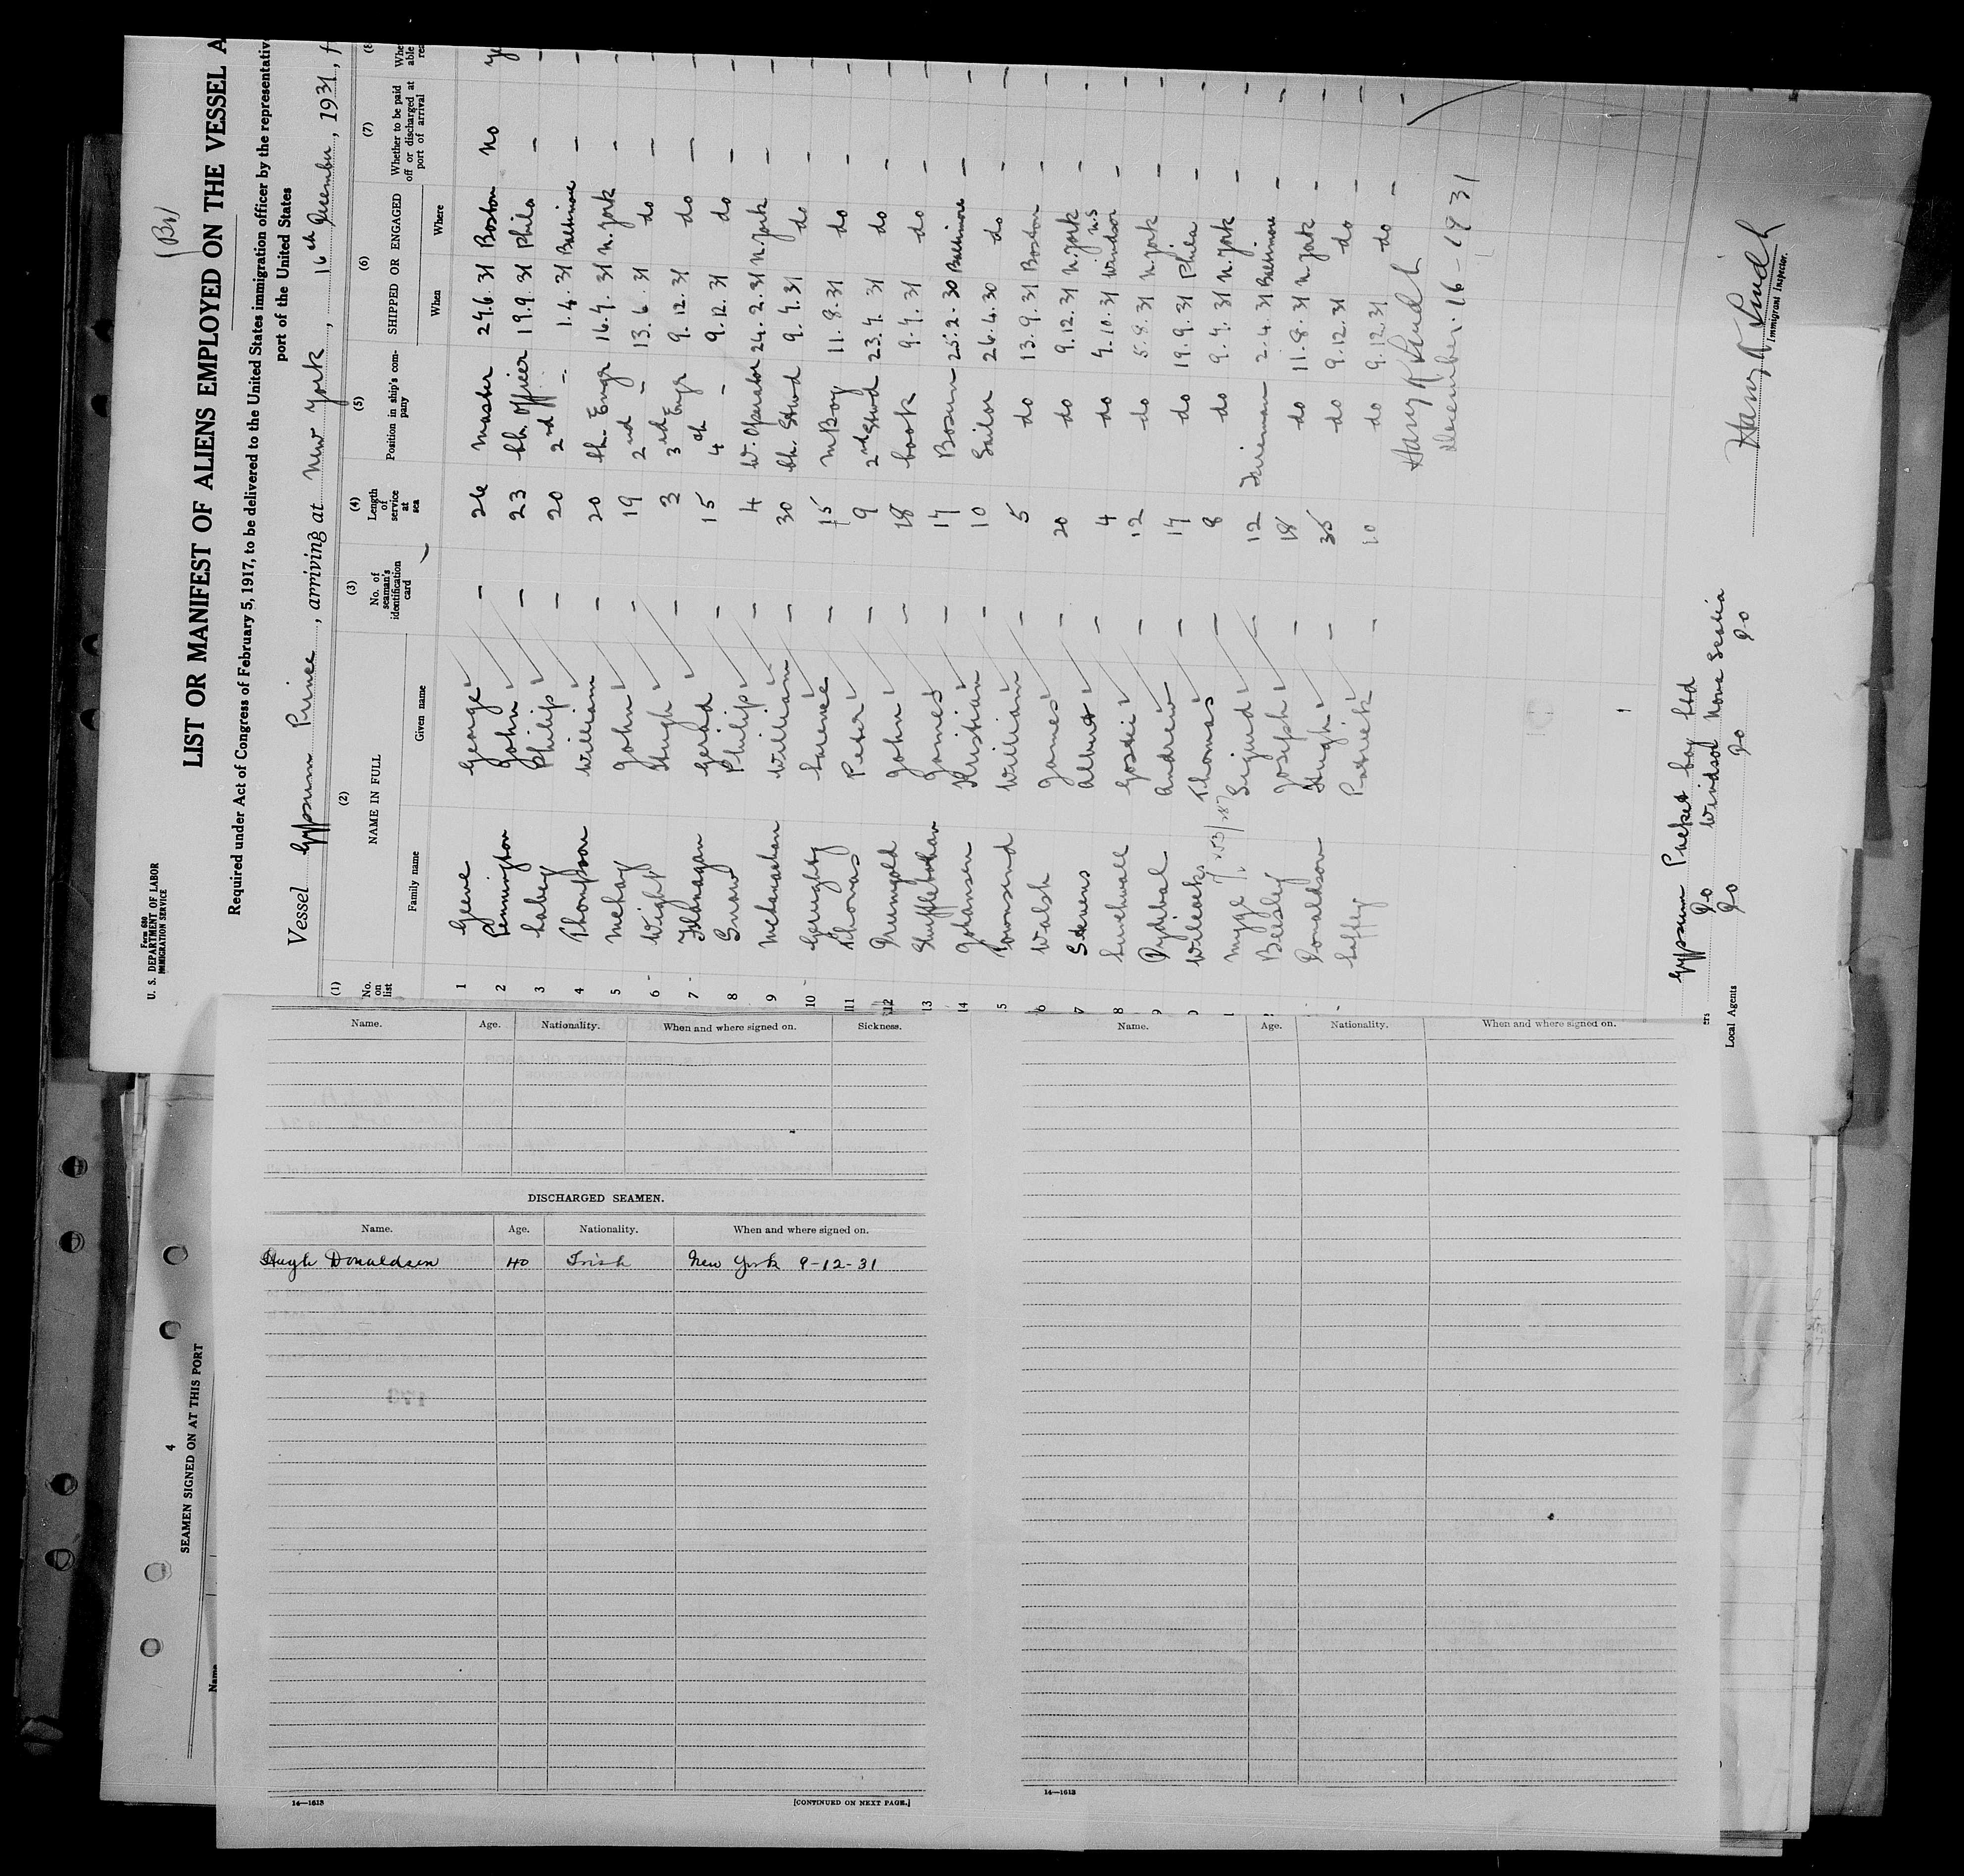 Form 680
U. S. DEPARTMENT OF LABOR
IMMIGRATION SERVICE
(Br)
LIST OR MANIFEST OF ALIENS EMPLOYED ON THE VESSEL A
Required under Act of Congress of February 5, 1917, to be delivered to the United States immigration officer by the representative
port of the United States
Vessel Gypsum Prince, arriving at New York, 16th December, 1931, f
(1) (2) (3) (4) (5) (6) (7) (8
No. on list NAME IN FULL No. of seaman's identification card Length of service at sea Position in ship's company SHIPPED OR ENGAGED Whether to be paid off or discharged at port of arrival Whe able rea
Family name Given name When Where
1 Greene George — 26 Master 24.6.31 Boston No ye
2 Pennington John — 23 Ch. Officer 19.9.31 Phila — —
3 Lahey Philip — 20 2nd - 1.4.31 Baltimore — —
4 Thompson William — 20 Ch. Engr 16.4.31 N. York — —
5 McKay John — 19 2nd - 13.6.31 do — —
6 Wight Hugh — 3 3rd Engr 9.12.31 do — —
7 Flanagan Gerard — 15 4th - 9.12.31 do — —
8 Snow Philip — 4 W. Operator 24.2.31 N. York — —
9 McLanahan William — 30 Ch. Stwd 9.4.31 do — —
10 Geraghty Larence — 15 M Boy 11.8.31 do — —
11 Thomas Peter — 9 2nd Stwd 23.4.31 do — —
12 Drumgold John — 18 Cook 9.4.31 do — —
13 Shufflebotham James — 17 Bosun 25.2.30 Baltimore — —
14 Johansen Kristian — 10 Sailor 26.4.30 do — —
5 Townsend William — 5 do 13.9.31 Boston — —
6 Walsh James — 20 do 9.12.31 N. York — —
7 Stevens Albert — 4 do 4.10.31 Windsor N.S — —
8 12 do 5.8.31 N. York — —
9 Andrew — 17 do 19.9.31 Phila — —
0 Thomas — 8 do 9.4.31 N. York — —
1 Sigurd — 12 Fireman 2.4.31 Baltimore — —
2 Beesley Joseph — 18 do 11.8.31 N. York — —
Donaldson Hugh — 35 do 9.12.31 do — —
Laffey Patrick — 10 do 9.12.31 do — —
December. 16-1931
Gypsum Packet Coy Ltd
ers Do Windsor Nova Scotia
Local Agents Do Do Do
Immigrant Inspector.
4
SEAMEN SIGNED ON AT THIS PORT
Name
Name. Age. Nationality. When and where signed on. Sickness.
DISCHARGED SEAMEN.
Name. Age. Nationality. When and where signed on.
Hugh Donaldsen 40 Irish New York 9-12-31
14—1613
[CONTINUED ON NEXT PAGE.]
Name. Age. Nationality. When and where signed on.
14—1613